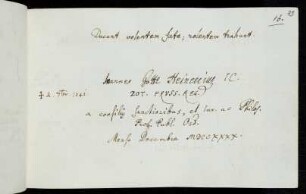 16.
Ducunt volentem fata, nolentem trahunt.
Ioannes Gottl. Heineccius IC.
POT. PRUSS. REG.
a consiliis sanctioribus, et iur. ac Philos.
Prof. Publ. Ord.
Mense Decembri MDCCXXXX.